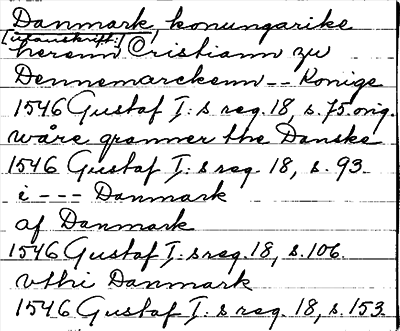 Danmark, konungarike
[utanskrift:]
herenn Cristiann zu
Dennemarckenn -- Konige
1546 Gustaf I:s reg. 18, s. 75 orig.
wåre granner the Danske
1546 Gustaf I:s reg. 18, s. 93.
i --- Danmark
af Danmark
1546 Gustaf I:s reg. 18, s. 106.
vthi Danmark
1546 Gustaf I:s reg. 18, s. 153.